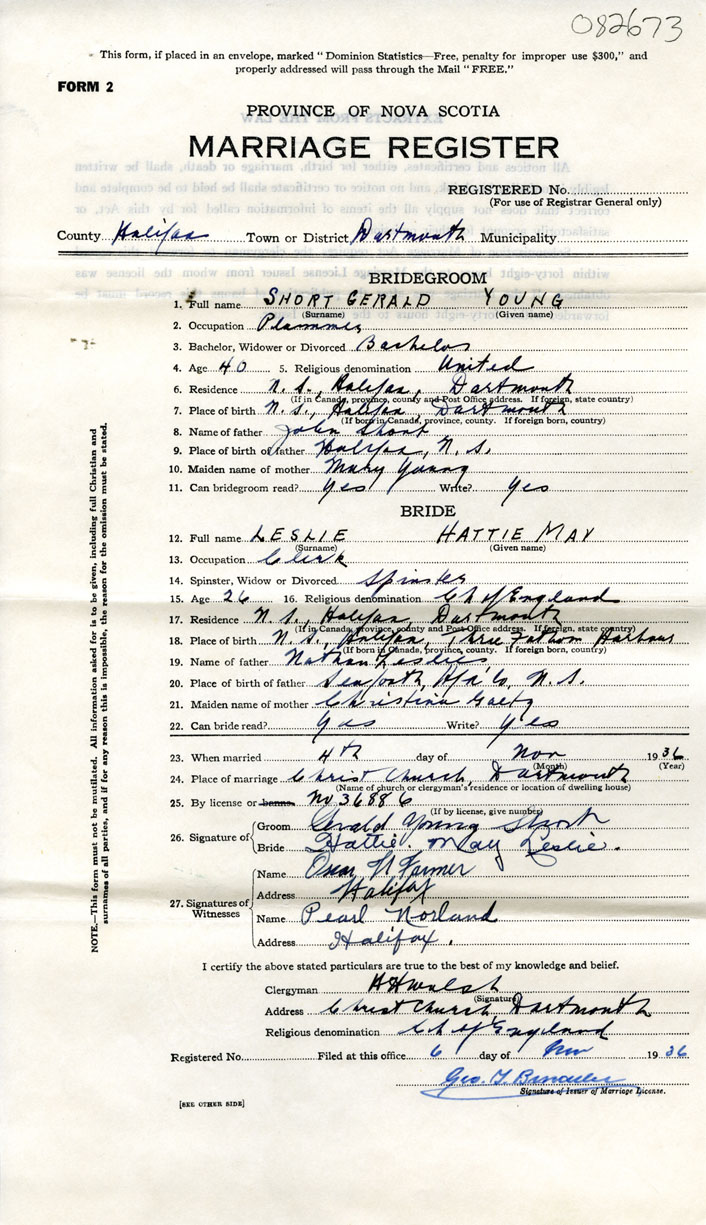 082673
This form, if placed in an envelope, marked "Dominion Statistics—Free, penalty for improper use $300," and
properly addressed will pass through the Mail "FREE."
FORM 2
PROVINCE OF NOVA SCOTIA
MARRIAGE REGISTER
REGISTERED No.
(For use of Registrar General only)
County Halifax Town or District Dartmouth Municipality
BRIDEGROOM
1. Full name SHORT GERALD YOUNG
(Surname) (Given name)
2. Occupation Plummer
3. Bachelor, Widower or Divorced Bachelor
4. Age 40 5. Religious denomination United
6. Residence N. S., Halifax, Dartmouth
(If in Canada, province, county and Post Office address. If foreign, state country)
7. Place of birth N. S., Halifax, Dartmouth
(If born in Canada, province, county. If foreign born, country)
8. Name of father John Short
9. Place of birth of father Halifax, N. S.
10. Maiden name of mother Mary Young
11. Can bridegroom read? Yes Write? Yes
BRIDE
12. Full name LESLIE HATTIE MAY
(Surname) (Given name)
13. Occupation Clerk
14. Spinster, Widow or Divorced Spinster
15. Age 26 16. Religious denomination Ch of England
17. Residence N. S., Halifax, Dartmouth
(If in Canada, province, county and Post Office address. If foreign, state country)
18. Place of birth N. S., Halifax, Three Fathom Harbour
(If born in Canada, province, county. If foreign born, country)
19. Name of father Nathan Leslie
20. Place of birth of father Seaforth, Hfx Co, N. S.
21. Maiden name of mother Christina Gaetz
22. Can bride read? Yes Write? Yes
23. When married 4th day of Nov 1936
(Month) (Year)
24. Place of marriage Christ Church, Dartmouth
(Name of church or clergyman's residence or location of dwelling house)
25. By license or banns No 36886
(If by license, give number)
26. Signature of Groom Gerald Young Short
Bride Hattie May Leslie.
27. Signatures of Witnesses Name Oscar N Farmer
Address Halifax
Name Pearl Norland
Address Halifax.
I certify the above stated particulars are true to the best of my knowledge and belief.
Clergyman H H Walsh
(Signature)
Address Christ Church Dartmouth
Religious denomination Ch of England
Registered No. Filed at this office 6 day of Nov 1936
Geo. T.
Signature of Issuer of Marriage License.
[SEE OTHER SIDE]
NOTE.—This form must not be mutilated. All information asked for is to be given, including full Christian and
surnames of all parties, and if for any reason this is impossible, the reason for the omission must be stated.